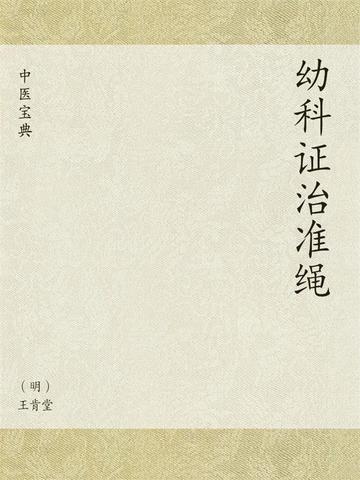 幼科证治准绳
中医宝典
（明）
王肯堂